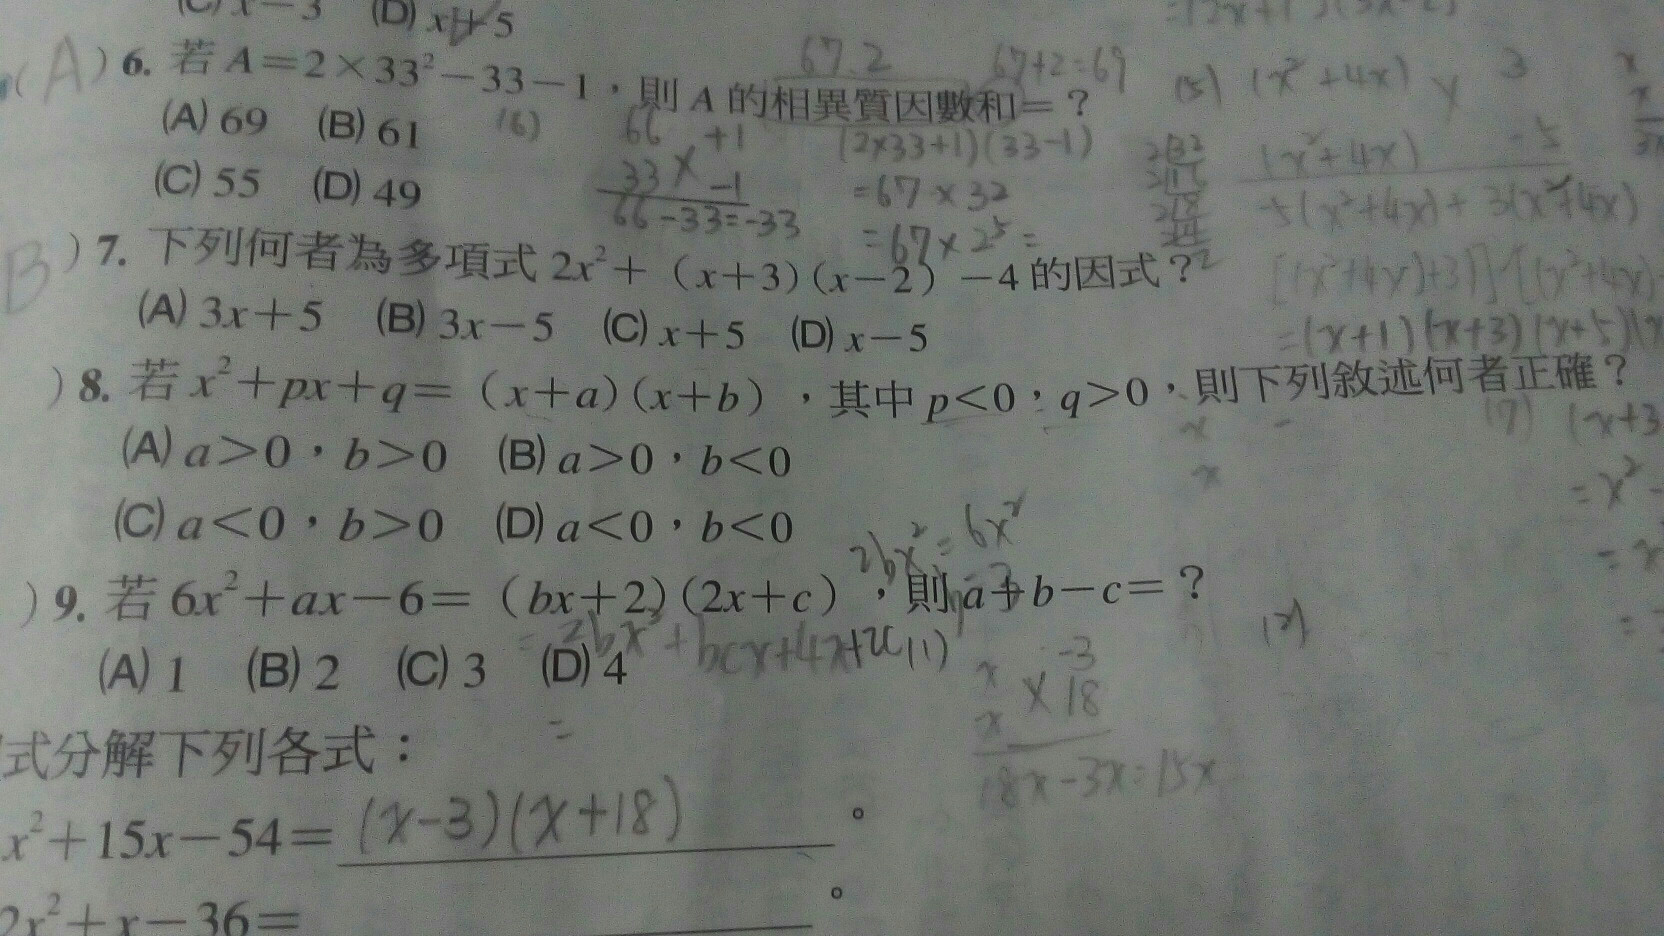 (C) x－3 (D) x+5
(A) 6. 若 A＝2×33²－33－1，則 A 的相異質因數和＝？
67.2 67+2=69
(A) 69 (B) 61
(6) 66 +1
(2×33+1)(33-1)
(C) 55 (D) 49
33 × -1
=67×32
66-33=-33
=67×2⁵=
(5) (x²+4x) y 3
(x²+4x) -5
-5(x²+4x)+3(x²+4x)
[(x²+4x)+3)][(x²+4x)
=(x+1)(x+3)(x+5)(x
B ) 7. 下列何者為多項式 2x²＋（x＋3）(x－2）－4 的因式？
(A) 3x＋5 (B) 3x－5 (C) x＋5 (D) x－5
) 8. 若 x²＋px＋q＝（x＋a）(x＋b），其中 p＜0，q＞0，則下列敘述何者正確？
(A) a＞0，b＞0 (B) a＞0，b＜0
(7) (x+3
= x²
(C) a＜0，b＞0 (D) a＜0，b＜0
2bx²=6x²
) 9. 若 6x²＋ax－6＝（bx＋2）(2x＋c），則 a＋b－c＝？
=2bx²+bcx+4x+2c
(A) 1 (B) 2 (C) 3 (D) 4
(1)
x -3
x × 18
18x-3x=15x
(2)
=
式分解下列各式：
x²＋15x－54＝(x-3)(x+18)。
2x²＋x－36＝ 。